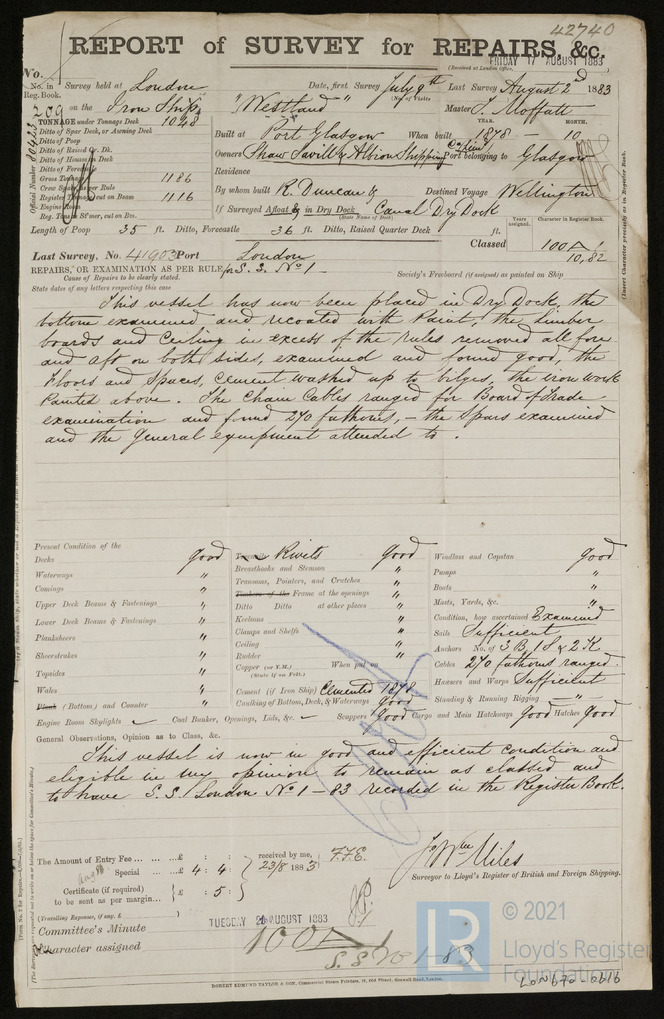 42740
REPORT of SURVEY for REPAIRS, &c.
FRIDAY 17 AUGUST 1883
(Received at London Office,
No.
No. in Reg. Book. Survey held at London Date, first Survey July 9th Last Survey August 2d 1883
(No. of Visits
209 on the Iron Ship "Westland" Master J. Moffatt
TONNAGE under Tonnage Deck 1048
YEAR. MONTH.
Ditto of Spar Deck, or Awning Deck
Built at Port Glasgow When built 1878 - 10
Ditto of Poop
Ditto of Raised Qr. Dk.
Owners Shaw Savill & Albion Shipping Port belonging to Glasgow
Ditto of Houses on Deck
Ditto of Forecastle
Residence
Gross Tonnage 1186
Crew Space per Rule
By whom built R. Duncan & Co Destined Voyage Wellington
Register Tonnage cut on Beam 1116
Engine Room
If Surveyed Afloat & in Dry Dock Canal Dry Dock
(State Name of Dock)
Reg. Ton. St'mer, cut on Bm.
Official Number 80423
Length of Poop 35 ft. Ditto, Forecastle 36 ft. Ditto, Raised Quarter Deck ft.
Years assigned. Character in Register Book.
Classed 100 A 1
10,82
(Insert Character precisely as in Register Book.)
Last Survey, No. 41903 Port London
REPAIRS, OR EXAMINATION AS PER RULE, for S.S. No 1 -
Society's Freeboard (if assigned) as painted on Ship
Cause of Repairs to be clearly stated.
State dates of any letters respecting this case
This vessel has now been placed in Dry Dock, the
bottom examined and recoated with Paint, the limber
boards and Ceiling in excess of the rules removed all fore
and aft on both sides, examined and found good, the
Floors and Spaces, Cement washed up to bilges, the iron work
Painted above. The Chain Cables ranged for Board of Trade
examination and found 270 fathoms, - the Spars examined
and the General equipment attended to.
Present Condition of the
Decks good
Waterways "
Comings "
Upper Deck Beams & Fastenings "
Lower Deck Beams & Fastenings "
Planksheers "
Sheerstrakes "
Topsides "
Wales "
Plank (Bottom) and Counter "
Engine Room Skylights
Treenails Rivets good
Breasthooks and Stemson "
Transoms, Pointers, and Crutches "
Timbers of the Frame at the openings "
Ditto Ditto at other places "
Keelsons "
Clamps and Shelfs "
Ceiling "
Rudder "
Copper (or Y.M.) When put on
(State if on Felt.)
Cement (if Iron Ship) Cemented 1878
Caulking of Bottom, Deck, & Waterways good
Coal Bunker, Openings, Lids, &c. Scuppers Good
Windlass and Capstan good
Pumps "
Boats "
Masts, Yards, &c. "
Condition, how ascertained Examined
Sails Sufficient
Anchors No. of 3 B, 1 S & 2 K
Cables 270 fathoms ranged.
Hawsers and Warps Sufficient
Standing & Running Rigging "
Cargo and Main Hatchways Good Hatches Good
General Observations, Opinion as to Class, &c.
This vessel is now in good and efficient condition and
eligible in my opinion to remain as classed and
to have S.S. London No 1 - 83 recorded in the Register Book.
The Amount of Entry Fee ... ... £ : :
received by me,
Special ... ... £ 4 : 4 :
23/8 1883
F.J.E.
Certificate (if required) to be sent as per margin... £ : 5 :
(Travelling Expenses, if any, £
Jo Wm Miles
Surveyor to Lloyd's Register of British and Foreign Shipping.
TUESDAY 21 AUGUST 1883
Committee's Minute
Character assigned 100 A 1
S.S No 1 - 83
ROBERT EDMUND TAYLOR & SON, Commercial Steam Printers, 19, Old Street, Goswell Road, London.
LR
© 2021
Lloyd's Register
Foundation
LON670-0616